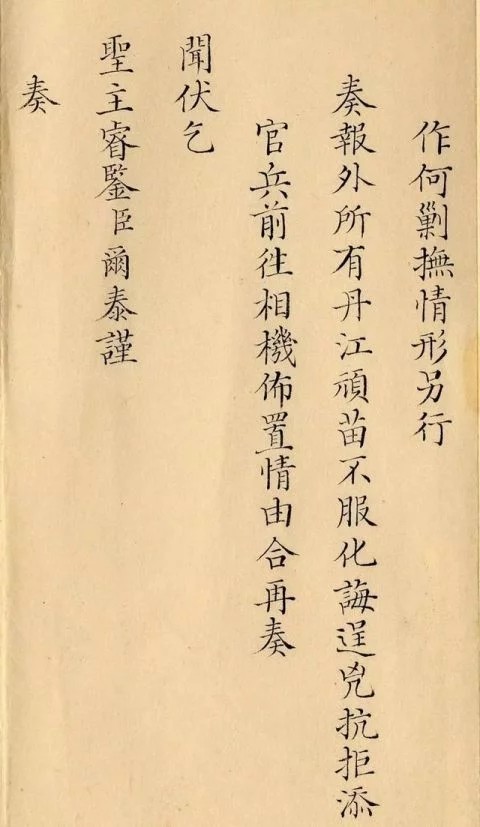 作何剿撫情形另行
奏報外所有丹江頑苗不服化誨逞兇抗拒添
官兵前徃相機佈置情由合再奏
聞伏乞
聖主睿鑒臣爾泰謹
奏